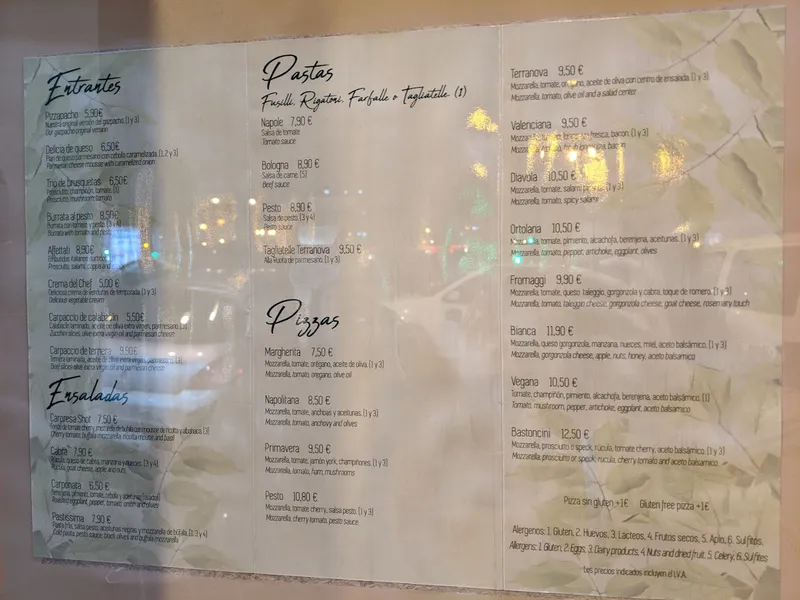 Entrantes
Pizzapacho 5,90€
Nuestra original versión del gazpacho. (1 y 3)
Our gazpacho original version
Delicia de queso 6,50€
Flan de queso parmesano con cebolla caramelizada. (1, 2 y 3)
Parmesan cheese mousse with caramelized onion
Trio de brusquetas 6,50€
Prosciutto, champiñón, tomate. (1)
Prosciutto, mushroom, tomato
Burrata al pesto 8,50€
Burrata con tomate y pesto. (3 y 4)
Burrata with tomato and pesto
Affettati 8,90€
Embutidos italianos
Prosciutto, salami, coppa and
Crema del Chef 5,00 €
Deliciosa crema de verduras de temporada. (1 y 3)
Delicious vegetable cream
Carpaccio de calabacín 5,50€
Calabacín laminado, aceite de oliva extra virgen, parmesano.
Zucchini slices, olive extra virgin oil and parmesan cheese
Carpaccio de ternera 9,90€
Ternera laminada, aceite de oliva extra virgen, parmesano.
Beef slices olive extra virgin oil and parmesan cheese
Ensaladas
Carpresa Shot 7,50 €
Fondo de tomate cherry, mozzarella de búfala con mousse de ricotta y albahaca. (3)
Cherry tomato, buffala mozzarella, ricotta mousse and basil
Cabra 7,90 €
Rúcula, queso de cabra, manzana y nueces. (3 y 4)
Rucula, goat cheese, apple and nuts
Carponata 6,50 €
Berenjena, pimiento, tomate, cebolla y aceitunas
Roasted eggplant, pepper, tomato, onion and olives
Pastissima 7,90 €
Pasta fría, salsa pesto, aceitunas negras y mozzarella de búfala. (1, 3 y 4)
Cold pasta, pesto sauce, black olives and buffala mozzarella
Pastas
Fusilli, Rigatoni, Farfalle o Tagliatelle. (1)
Napole 7,90 €
Salsa de tomate
Tomato sauce
Bologna 8,90 €
Salsa de carne. (5)
Beef sauce
Pesto 8,90 €
Salsa de pesto. (3 y 4)
Pesto sauce
Tagliatelle Terranova 9,50 €
A la rueda de parmesano. (1 y 3)
Pizzas
Margherita 7,50 €
Mozzarella, tomate, orégano, aceite de oliva. (1 y 3)
Mozzarella, tomato, oregano, olive oil
Napolitana 8,50 €
Mozzarella, tomate, anchoas y aceitunas. (1 y 3)
Mozzarella, tomato, anchovy and olives
Primavera 9,50 €
Mozzarella, tomate, jamón york, champiñones. (1 y 3)
Mozzarella, tomato, ham, mushrooms
Pesto 10,80 €
Mozzarella, tomate cherry, salsa pesto. (1 y 3)
Mozzarella, cherry tomato, pesto sauce
Terranova 9,50 €
Mozzarella, tomate, orégano, aceite de oliva con centro de ensalada. (1 y 3)
Mozzarella, tomato, olive oil and a salad center
Valenciana 9,50 €
Mozzarella, tomate, fresca, bacon. (1 y 3)
Mozzarella, bacon
Diavola 10,50 €
Mozzarella, tomate, salami (1 y 3)
Mozzarella, tomato, spicy salami
Ortolana 10,50 €
Mozzarella, tomate, pimiento, alcachofa, berenjena, aceitunas. (1 y 3)
Mozzarella, tomato, pepper, artichoke, eggplant, olives
Fromaggi 9,90 €
Mozzarella, tomate, queso taleggio, gorgonzola y cabra, toque de romero. (1 y 3)
Mozzarella, tomato, taleggio cheese, gorgonzola cheese, goat cheese, rosemary touch
Bianca 11,90 €
Mozzarella, queso gorgonzola, manzana, nueces, miel, aceto balsámico. (1 y 3)
Mozzarella, gorgonzola cheese, apple, nuts, honey, aceto balsamico
Vegana 10,50 €
Tomate, champiñón, pimiento, alcachofa, berenjena, aceto balsámico. (1)
Tomato, mushroom, pepper, artichoke, eggplant, aceto balsamico
Bastoncini 12,50 €
Mozzarella, prosciutto o speck, rúcula, tomate cherry, aceto balsámico. (1 y 3)
Mozzarella, prosciutto or speck, rucula, cherry tomato and aceto balsamico
Pizza sin gluten +1€ Gluten free pizza +1€
Alergenos: 1. Gluten, 2. Huevos, 3. Lacteos, 4. Frutos secos, 5. Apio, 6. Sulfitos.
Allergens: 1. Gluten, 2. Eggs, 3. Dairy products, 4. Nuts and dried fruit, 5. Celery, 6. Sulfites
Los precios indicados incluyen el I.V.A.